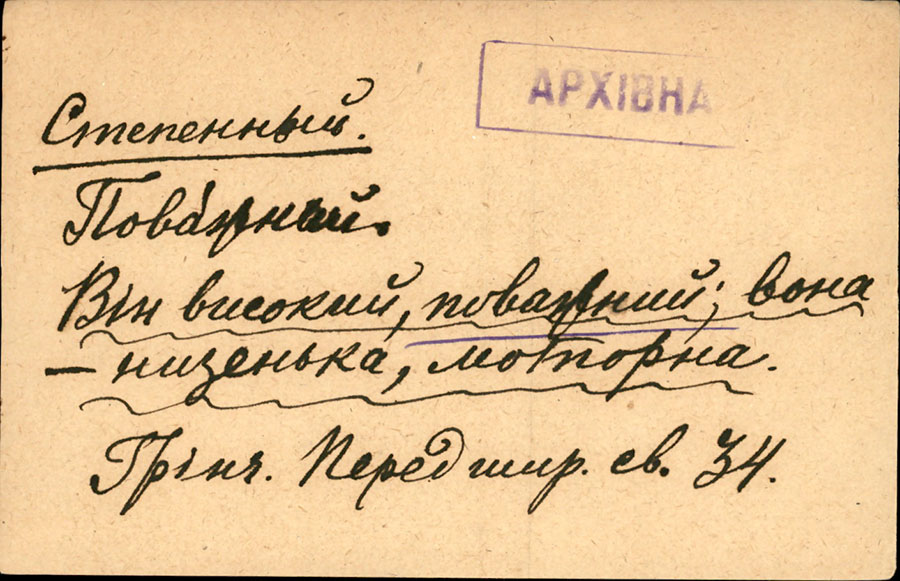 АРХІВНА
Степенный.
Пова́жний.
Він високий, поважний; вона
— низенька, моторна.
Грінч. Перед шир. св. 34.